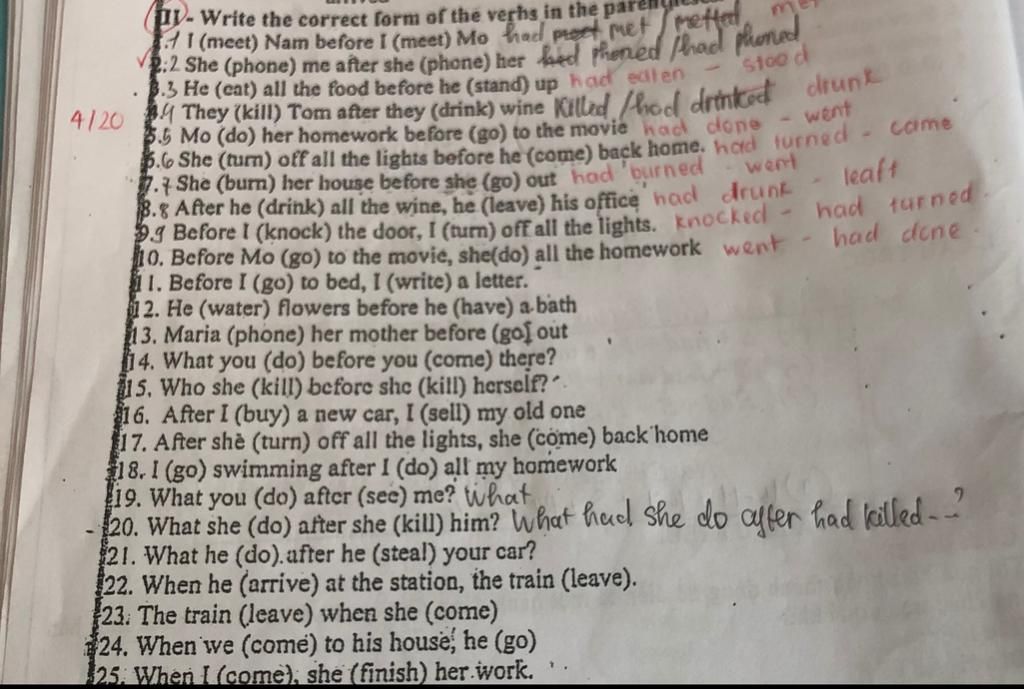 III- Write the correct form of the verbs in the parentheses
1.1 I (meet) Nam before I (meet) Mo had met / metted met
2.2 She (phone) me after she (phone) her had phoned / had phoned
3.3 He (eat) all the food before he (stand) up had eaten - stood
4/20
4 They (kill) Tom after they (drink) wine Killed / had drinked drunk
5.5 Mo (do) her homework before (go) to the movie had done - went
6.6 She (turn) off all the lights before he (come) back home. had turned - came
7.7 She (burn) her house before she (go) out had burned - went
8.8 After he (drink) all the wine, he (leave) his office had drunk - leaft
9.9 Before I (knock) the door, I (turn) off all the lights. knocked - had turned.
10. Before Mo (go) to the movie, she(do) all the homework went - had done.
11. Before I (go) to bed, I (write) a letter.
12. He (water) flowers before he (have) a bath
13. Maria (phone) her mother before (go) out
14. What you (do) before you (come) there?
15. Who she (kill) before she (kill) herself?
16. After I (buy) a new car, I (sell) my old one
17. After she (turn) off all the lights, she (come) back home
18. I (go) swimming after I (do) all my homework
19. What you (do) after (see) me? What
- 20. What she (do) after she (kill) him? What had she do after had killed--?
21. What he (do) after he (steal) your car?
22. When he (arrive) at the station, the train (leave).
23. The train (leave) when she (come)
24. When we (come) to his house, he (go)
25. When I (come), she (finish) her work.